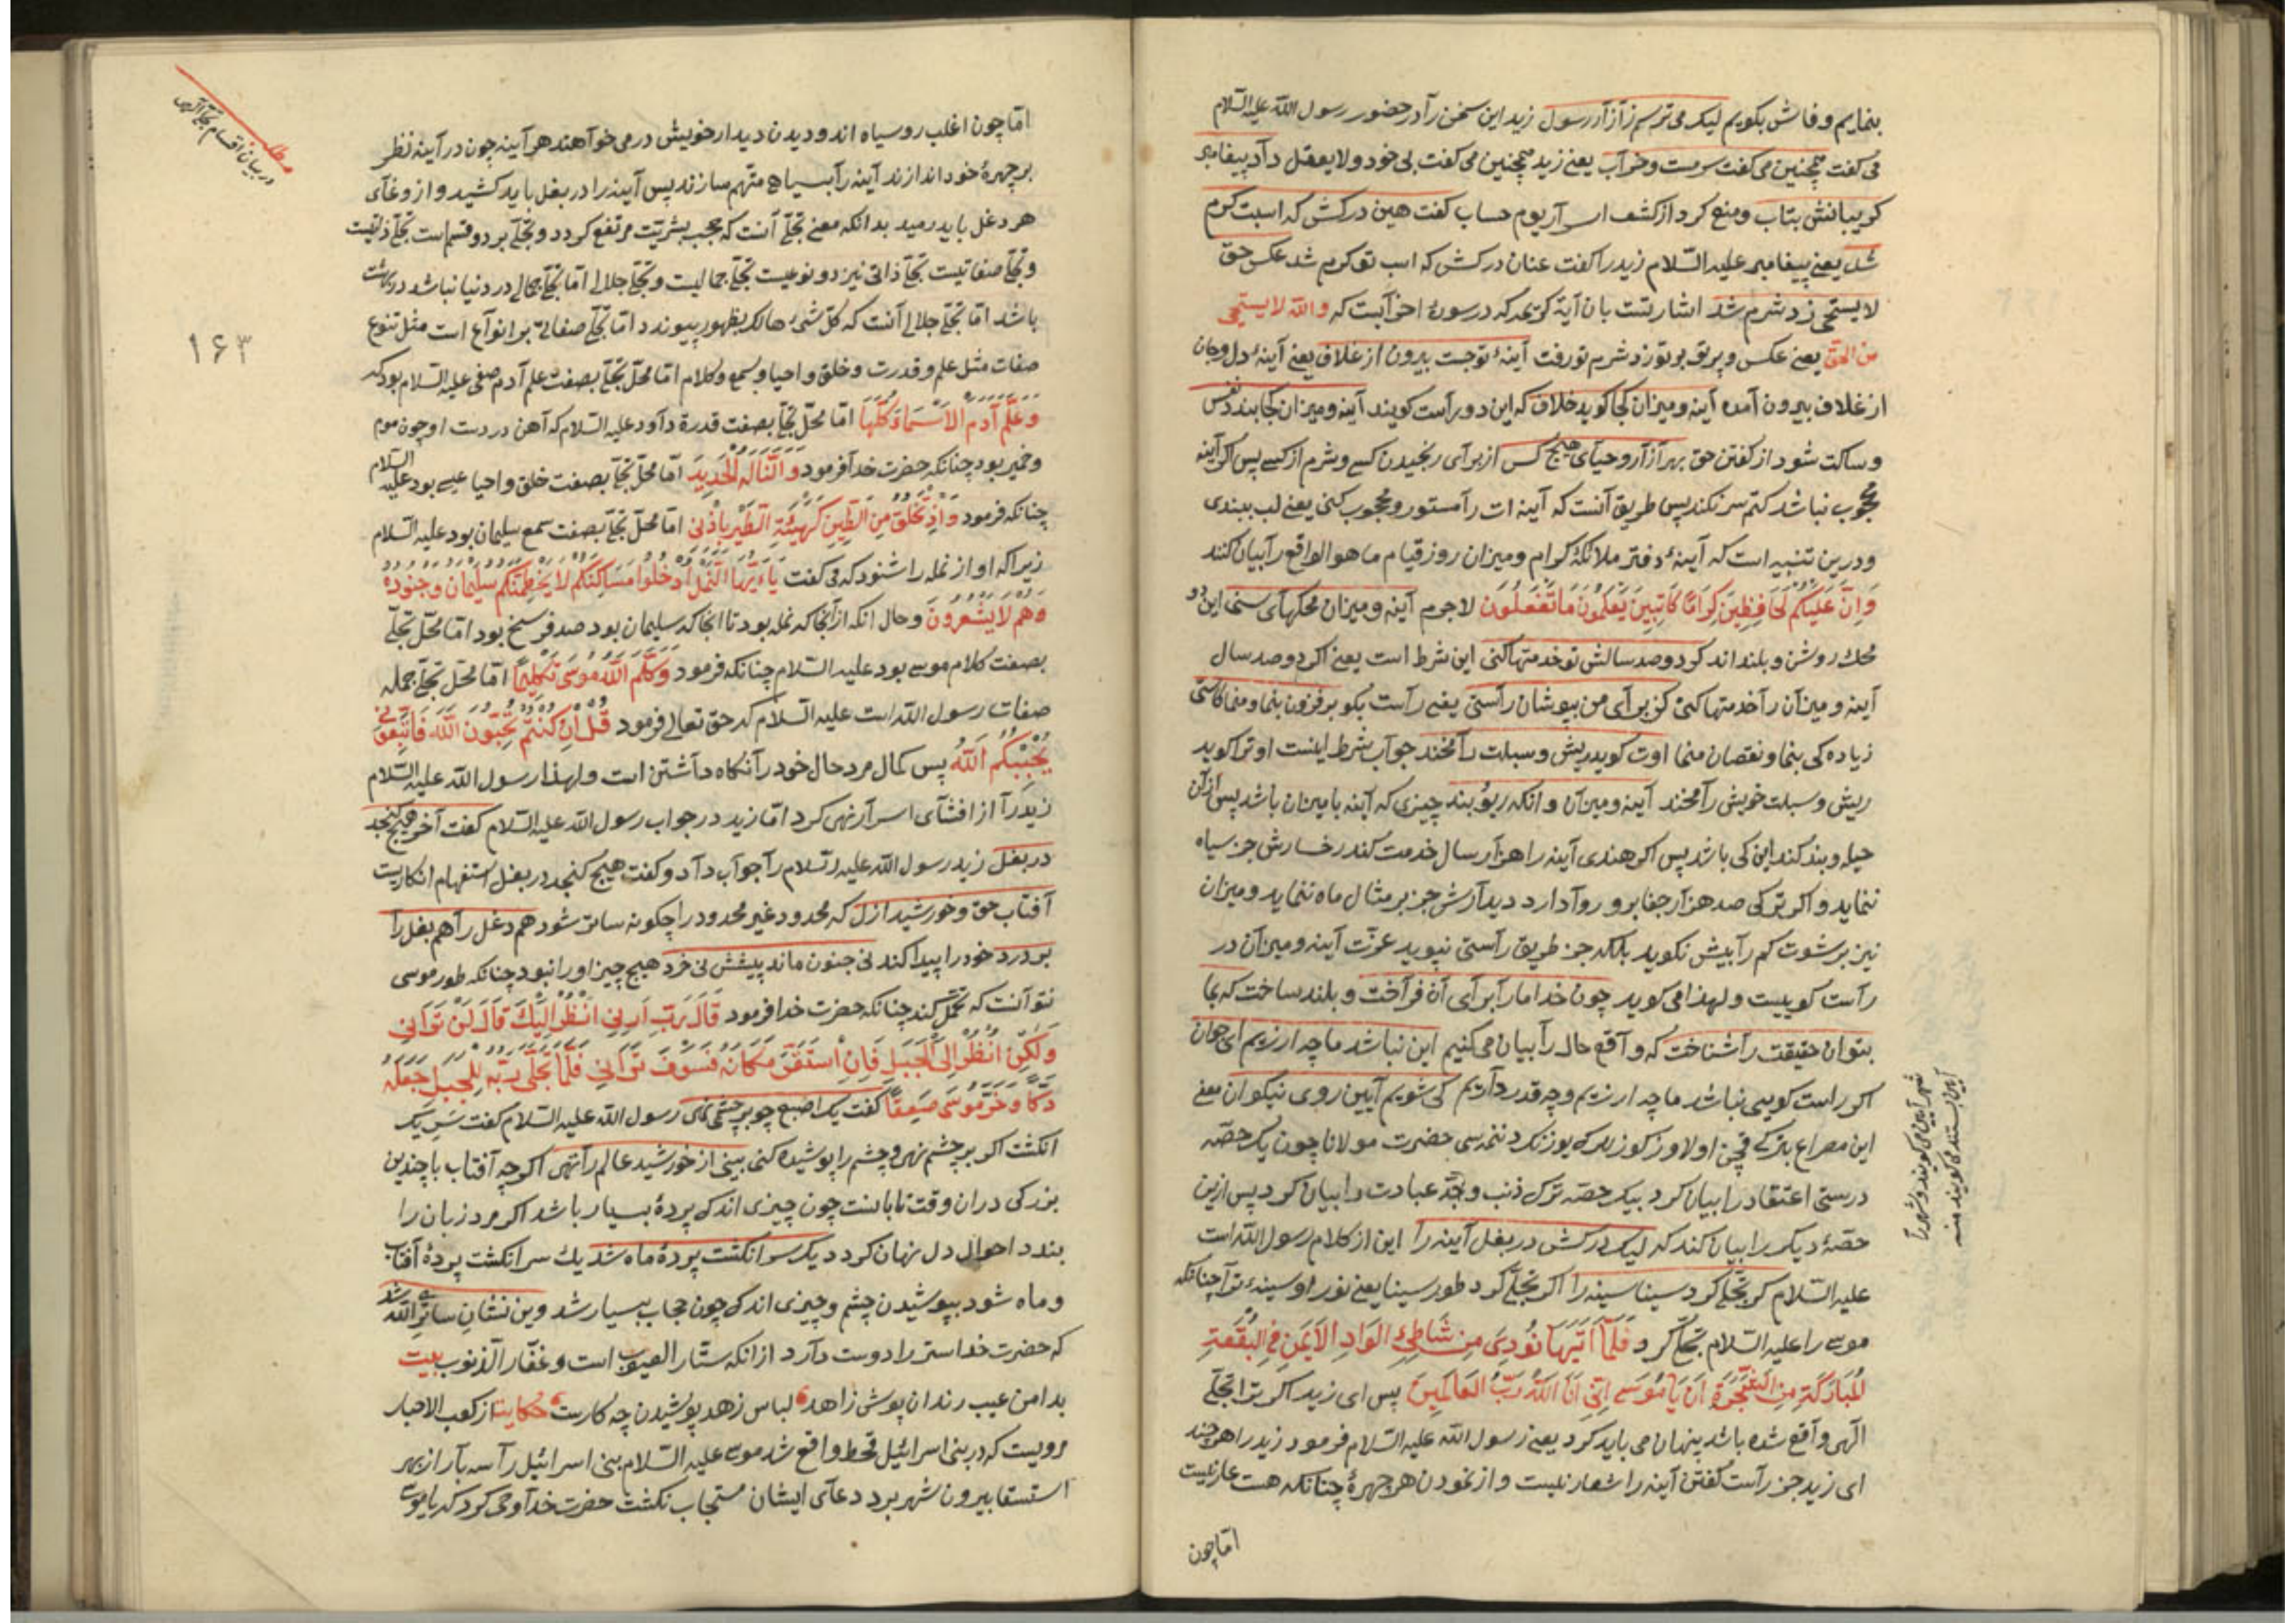 بنمایم و فاش بکویم لیک می ترسم ز آزار رسول زید این سخن را در حضور رسول الله علیه السلام
می کفت همچنین می کفت سرمست و خراب یعنی زید همچنین می کفت بی خود و لایعقل داد پیغامبر
کریبانش بتاب و منع کرد از کشف اسرار یوم حساب کفت هین درکش که اسبت کرم
شد یعنی پیغامبر علیه السلام زید را کفت عنان درکش که اسب تو کرم شد عکس حق
لایستحی زد شرم شد اشارتست بان آیة کریمه که در سورۀ احزابست که والله لا یستحیی
من الحق یعنی عکس و پرتو بر تو زد شرم تو رفت آینۀ تو جست بیرون از غلاف یعنی آینۀ دل و جان
از غلاف بیرون آمده آینه و میزان کجا کوید خلاف که این دو راست کویند آینه و میزان کجا بندد نفس
و ساکت شود از کفتن حق بهر آزار و حیای هیچ کس از برای رنجیدن کسی و شرم از کسی پس اکر آینه
محجوب نباشد کتم سر نکند پس طریق آنست که آینه ات را مستور و محجوب کنی یعنی لب ببندی
و درین تنبیه است که آینۀ دفتر ملائکۀ کرام و میزان روز قیام ما هو الواقع را بیان کنند
وَاِنَّ عَلَیْکُمْ لَحَافِظِینَ کِرَامًا کَاتِبِینَ یَعْلَمُونَ مَا تَفْعَلُونَ لاجرم آینه و میزان محکهای سنی این دو
محک روشن و بلند اند کر دو صد سالش تو خدمتها کنی این شرط است یعنی اکر دو صد سال
آینه و میزان را خدمتها کنی کز برای من بپوشان راستی یعنی راست بکو بر فزون بنما و منما کاستی
زیاده کی بنما و نقصان منما اوت کوید ریش و سبلت را مخند جواب شرط اینست او ترا کوید
ریش و سبلت خویش را مخند آینه و میزان و انکه ریو بند چیزی که آینه با میزان باشد پس از آن
حیله و بند کند این کی باشد پس اکر هندی آینه را هزار سال خدمت کند رخسارش جز سیاه
ننماید و اکر ترکی صد هزار جفا برو روا دارد دیدارش جز بر مثال ماه ننماید و میزان
نیز برشوت کم را بیش نکوید بلکه جز طریق راستی نپوید عزت آینه و میزان در
راست کوییست و لهذا می کوید چون خدا ما را برای آن فراخت و بلند ساخت که بما
بتوان حقیقت را شناخت که واقع حال را بیان می کنیم این نباشد ما چه ارزیم ای جوان
اکر راست کویی نباشد ما چه ارزیم و چه قدر داریم کی شویم آیین روی نیکوان معنی
این مصراع حضرت مولانا چون یک حصه
درستی اعتقاد را بیان کرد بیک حصه ترک ذنب و جد عبادت را بیان کرد پس ازین
حصۀ دیکر را بیان کند که لیک درکش در بغل آینه را این از کلام رسول الله است
علیه السلام کر تجلی کرد سینا سینه را اکر تجلی کرد طور سینا یعنی نور او سینۀ ترا چنانکه
موسی را علیه السلام تجلی کرد فَلَمَّا اَتَیهَا نُودِیَ مِنْ شَاطِئِ الوَادِ الاَیْمَنِ فِی البُقْعَةِ
المُبَارَکَةِ مِنَ الشَّجَرَةِ اَنْ یَا مُوسَی اِنِّی اَنَا اللهُ رَبُّ العَالَمِینَ پس ای زید اکر ترا تجلی
الهی واقع شده باشد پنهان می باید کرد یعنی رسول الله علیه السلام فرمود زید را هر چند
ای زید جز راست کفتن آینه را شعار نیست و از نمودن هر چهرۀ چنانکه هست عار نیست
اما چون
شهر آیین می کویند و شهر را
آیین بستند می کویند منه
مطلب
در بیان اقسام تجلی الهی
۱۶۳
اما چون اغلب روسیاه اند و دیدن دیدار خویش درمی خواهند هر آینه چون در آینه نظر
بر چهرۀ خود اندازند آینه را بسیاهی متهم سازند پس آینه را در بغل باید کشید و از وغای
هر دغل باید رمید بدانکه معنی تجلی آنست که حجب بشریت مرتفع کردد و تجلی بر دو قسم است تجلی ذاتیست
و تجلی صفاتیست تجلی ذاتی نیز دو نوعیست تجلی جمالیست و تجلی جلالی اما تجلی جمالی در دنیا نباشد در بهشت
باشد اما تجلی جلالی آنست که کل شیء هالک بظهور پیوندد اما تجلی صفاتی بر انواع است مثل تنوع
صفات مثل علم و قدرت و خلق و احیا و سمع و کلام اما محل تجلی بصفت علم آدم صفی علیه السلام بود که
وَعَلَّمَ آدَمَ الاَسْمَاءَ کُلَّهَا اما محل تجلی بصفت قدرة داود علیه السلام که آهن در دست او چون موم
و خمیر بود چنانکه حضرت خدا فرمود وَاَلَنَّا لَهُ الْحَدِیدَ اما محل تجلی بصفت خلق و احیا عیسی بود علیه السلام
چنانکه فرمود وَاِذْ تَخْلُقُ مِنَ الطِّینِ کَهَیْئَةِ الطَّیْرِ بِاِذْنِی اما محل تجلی بصفت سمع سلیمان بود علیه السلام
زیرا که او از نمله را شنود که می کفت یَا اَیُّهَا النَّمْلُ ادْخُلُوا مَسَاکِنَکُمْ لَا یَحْطِمَنَّکُمْ سُلَیْمَانُ وَجُنُودُهُ
وَهُمْ لَا یَشْعُرُونَ و حال انکه از آنجا که نمله بود تا انجا که سلیمان بود صد فرسخ بود اما محل تجلی
بصفت کلام موسی بود علیه السلام چنانکه فرمود وَکَلَّمَ اللهُ مُوسَی تَکْلِیمًا اما محل تجلی جمله
صفات رسول الله است علیه السلام که حق تعالی فرمود قُلْ اِنْ کُنْتُمْ تُحِبُّونَ اللهَ فَاتَّبِعُونِی
یُحْبِبْکُمُ اللهُ پس کمال مرد حال خود را نکاه داشتن است و لهذا رسول الله علیه السلام
زید را از افشای اسرار نهی کرد اما زید در جواب رسول الله علیه السلام کفت آخر هیچ کنجد
در بغل زید رسول الله علیه السلام را جواب داد و کفت هیچ کنجد در بغل استفهام انکاریست
آفتاب حق و خورشید ازل که محدود غیر محدود را چکونه ساتر شود هم دغل را هم بغل را
بر درد خود را پیدا کند نی جنون ماند پیشش نی خرد هیچ چیز او را نبود چنانکه طور موسی
نتوانست که تحمل کند چنانکه حضرت خدا فرمود قَالَ رَبِّ اَرِنِی اَنْظُرْ اِلَیْکَ قَالَ لَنْ تَرَانِی
وَلَکِنِ انْظُرْ اِلَی الْجَبَلِ فَاِنِ اسْتَقَرَّ مَکَانَهُ فَسَوْفَ تَرَانِی فَلَمَّا تَجَلَّی رَبُّهُ لِلْجَبَلِ جَعَلَهُ
دَکًّا وَخَرَّ مُوسَی صَعِقًا کفت یک اصبع چو بر چشمی نهی رسول الله علیه السلام کفت سر یک
انکشت اکر بر چشم نهی و چشم را پوشیده کنی بینی از خورشید عالم را تهی اکرچه آفتاب با چندین
بزرکی دران وقت تابانست چون چیزی اندکی پردۀ بسیار باشد اکر مرد زبان را
بندد احوال دل نهان کردد یک سر انکشت پردۀ ماه شد یک سر انکشت پردۀ آفتاب
و ماه شود بپوشیدن چشم و چیزی اندکی چون حجاب بسیار شد وین نشان ساتری الله شد
که حضرت خدا ستر را دوست دارد از انکه ستار العیوب است و غفار الذنوب بیت
بدامن عیب رندان پوش زاهد لباس زهد پوشیدن چه کارست حکایت از کعب الاحبار
مرویست که در بنی اسرائیل قحط واقع شد موسی علیه السلام بنی اسرائیل را سه بار از بهر
استسقا بیرون شهر برد دعای ایشان مستجاب نکشت حضرت خدا وحی کرد که یا موسی